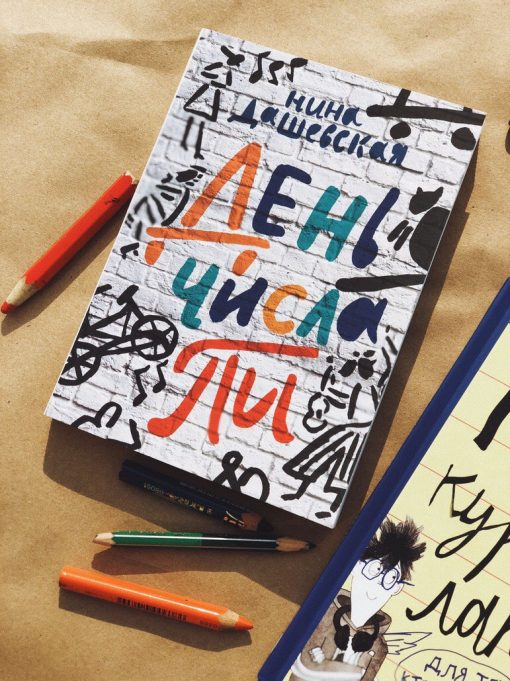 Нина
Дашевская
День
числа
Пи
для